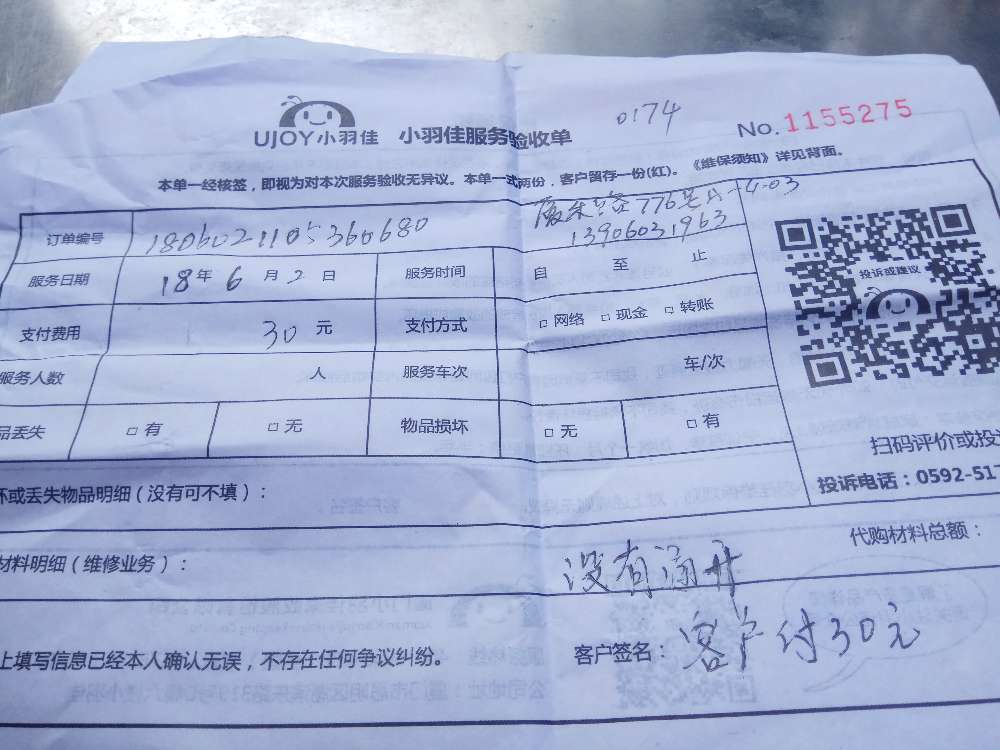 UJOY小羽佳 小羽佳服务验收单 0174 No. 1155275
本单一经核签，即视为对本次服务验收无异议。本单一式两份，客户留存一份(红)。《维保须知》详见背面。
订单编号 1806021105360680 776
13906031963
服务日期 18年 6 月 2 日 服务时间 自 至 止
投诉或建议
支付费用 30 元 支付方式 □ 网络 □ 现金 □ 转账
服务人数 人 服务车次 车/次
品丢失 □ 有 □ 无 物品损坏 □ 无 □ 有
扫码评价或投
坏或丢失物品明细（没有可不填）：
投诉电话：0592-517
材料明细（维修业务）： 代购材料总额：
没有通开
上填写信息已经本人确认无误，不存在任何争议纠纷。 客户签名： 客户付30元